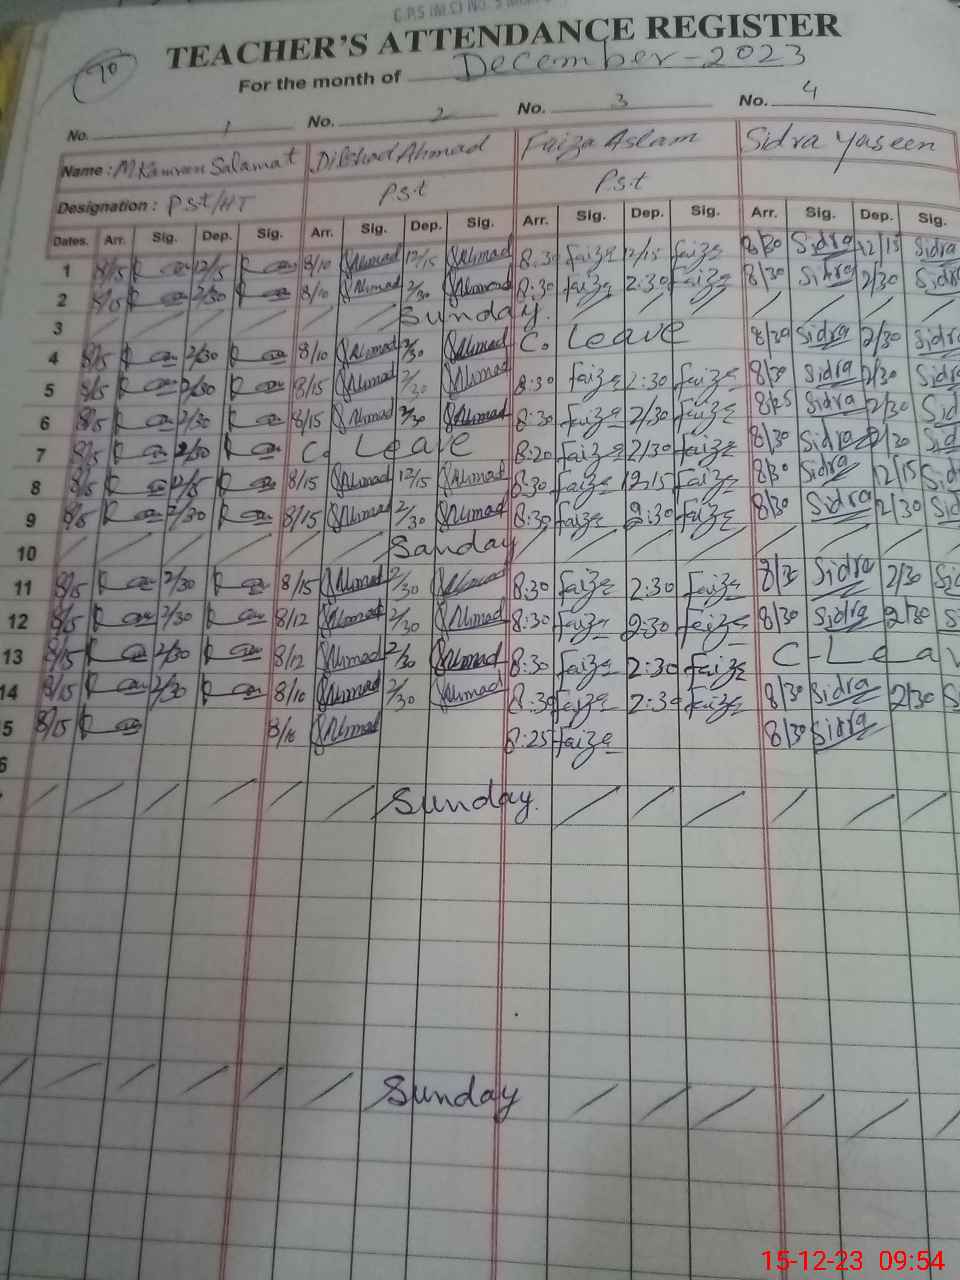 TEACHER'S ATTENDANCE REGISTER
70 For the month of December-2023
No. 1 No. 2 No. 3 No. 4
Name: M Kamran Salamat Dilshad Ahmad Faiza Aslam Sidra Yaseen
Designation: Pst/HT Pst Pst
Dates. Arr. Sig. Dep. Sig. Arr. Sig. Dep. Sig. Arr. Sig. Dep. Sig. Arr. Sig. Dep. Sig.
1 8/15 12/15 8/10 Ahmad 12/15 Ahmad 8:30 Faiza 12/15 Faiza 8/30 Sidra 12/15 Sidra
2 8/15 2/30 8/10 Ahmad 2/30 Ahmad 8:30 Faiza 2:30 Faiza 8/30 Sidra 2/30 Sidra
3 Sunday.
4 8/15 2/30 8/10 Ahmad 2/30 Ahmad C. Leave 8/30 Sidra 2/30 Sidra
5 8/15 2/30 8/15 Ahmad 2/30 Ahmad 8:30 Faiza 2:30 Faiza 8/30 Sidra 2/30 Sidra
6 8/15 2/30 8/15 Ahmad 2/30 Ahmad 8:30 Faiza 2/30 Faiza 8/25 Sidra 2/30 Sid
7 8/15 2/30 C. Leave 8:20 Faiza 2/30 Faiza 8/30 Sidra 2/30 Sid
8 8/15 12/15 8/15 Ahmad 12/15 Ahmad 8:30 Faiza 12/15 Faiza 8/30 Sidra 12/15 Sid
9 8/15 2/30 8/15 Ahmad 2/30 Ahmad 8:30 Faiza 2:30 Faiza 8/30 Sidra 2/30 Sid
10 Sanday
11 8/15 2/30 8/15 Ahmad 2/30 Ahmad 8:30 Faiza 2:30 Faiza 8/30 Sidra 2/30 Si
12 8/15 2/30 8/12 Ahmad 2/30 Ahmad 8:30 Faiza 2:30 Faiza 8/30 Sidra 2/30 S
13 8/15 2/30 8/12 Ahmad 2/30 Ahmad 8:30 Faiza 2:30 Faiza C-Leav
14 8/15 2/30 8/10 Ahmad 2/30 Ahmad 8:30 Faiza 2:30 Faiza 8/30 Sidra 2/30 S
5 8/15 8/10 Ahmad 8:25 Faiza 8/30 Sidra
6
Sunday.
Sunday
15-12-23 09:54